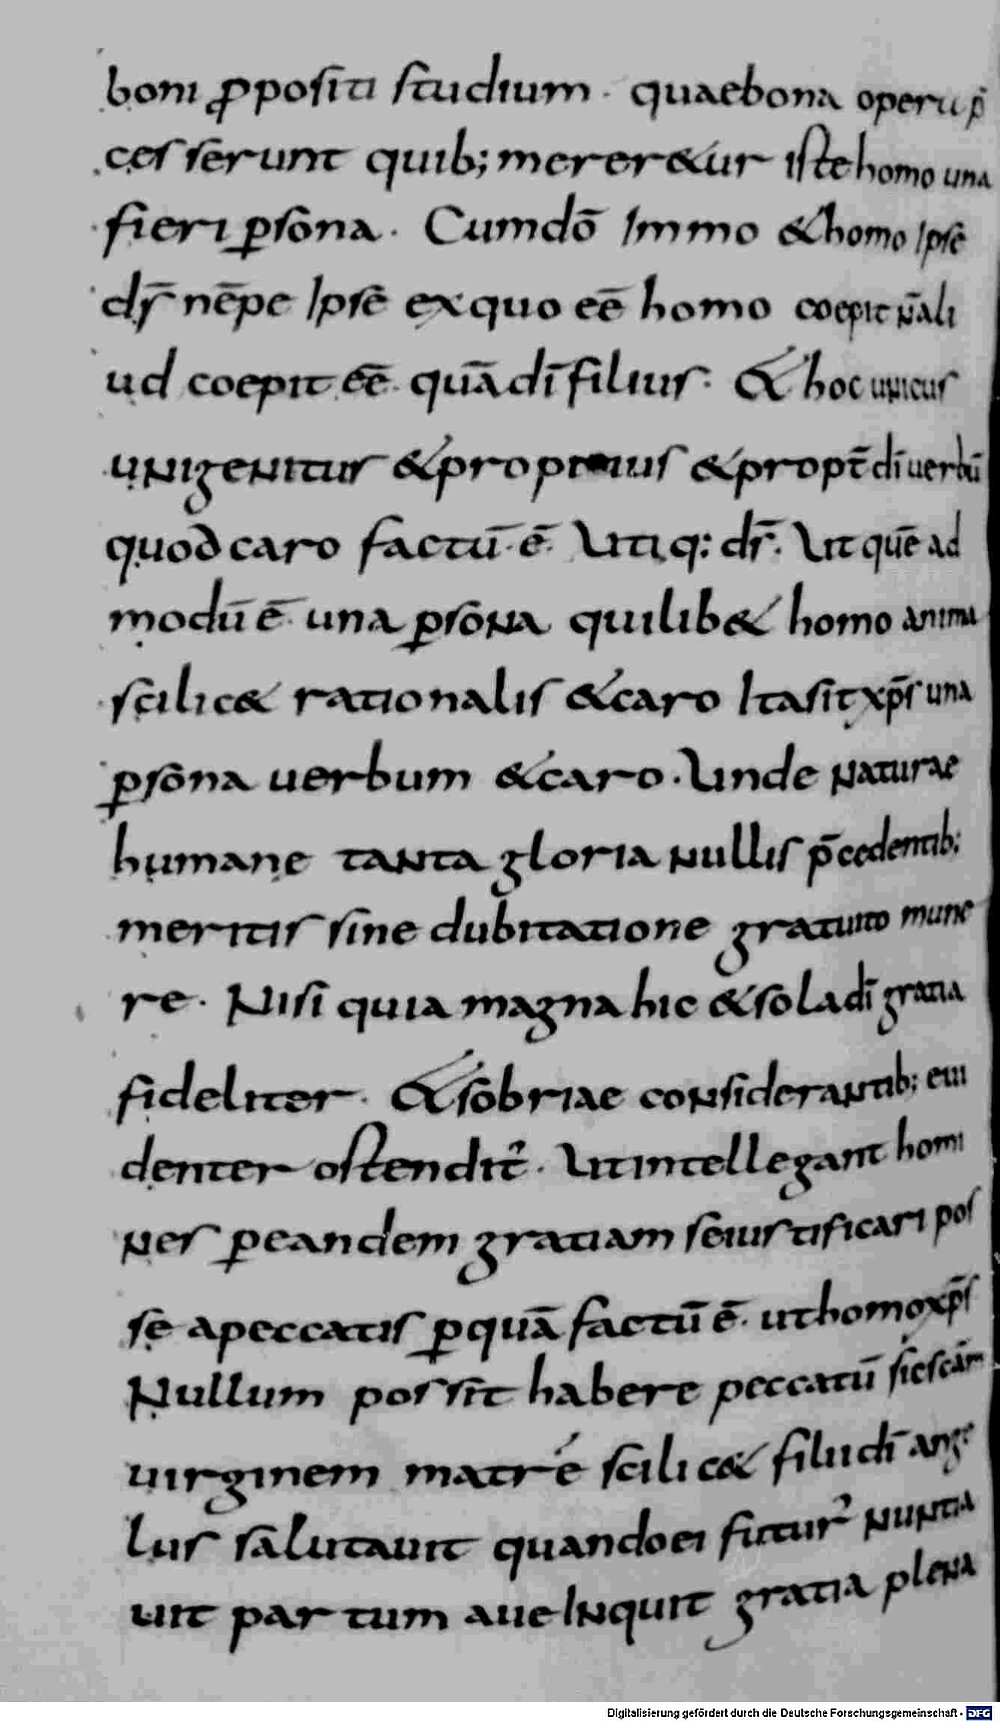 boni ꝓpositi studium · quaebona operu p̄
cesserunt quib; mereretur iste homo una
fieri ꝑsona · Cumdō Immo &homo Ipsē
dſ̄ nēpe Ipsē exquo eē homo coepit n̄ali
ud coepit eē quā dī filius · & hoc unicus
unigenitus &proprius &propt̄ dī uerbū
quod caro factū · ē · Utiq: dr̄. Ut quē ad
modū ē una ꝑsona quilib& homo anima
scilic& rationalis &caro Ita sit xp̄s una
ꝑsona uerbum &caro · Unde naturae
humane tanta gloria nullis p̄cedentib;
meritis sine dubitatione gratuito mune
re · Nisi quia magna hic &sola dī gratia
fideliter · &sobriae considerantib; eui
denter ostendit᷑ · Ut intellegant homi
nes ꝑeandem gratiam se iustificari pos
sę apeccatis ꝑquā factū ē · ut homo xp̄s
Nullum possit habere peccatū sic scām
uirginem matrē scilic& filii dī ange
lus salutauit quando ei futur᷑ nuntia
uit partum aue Inquit gratia plena
Digitalisierung gefördert durch die Deutsche Forschungsgemeinschaft - DFG